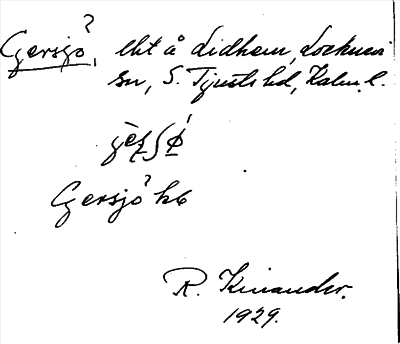 Gersjö?, lht å Lidhem, Locknevi
sn, S. Tjusts hd, Kalm. l.
Gersjö? hb
R. Kinander.
1929.